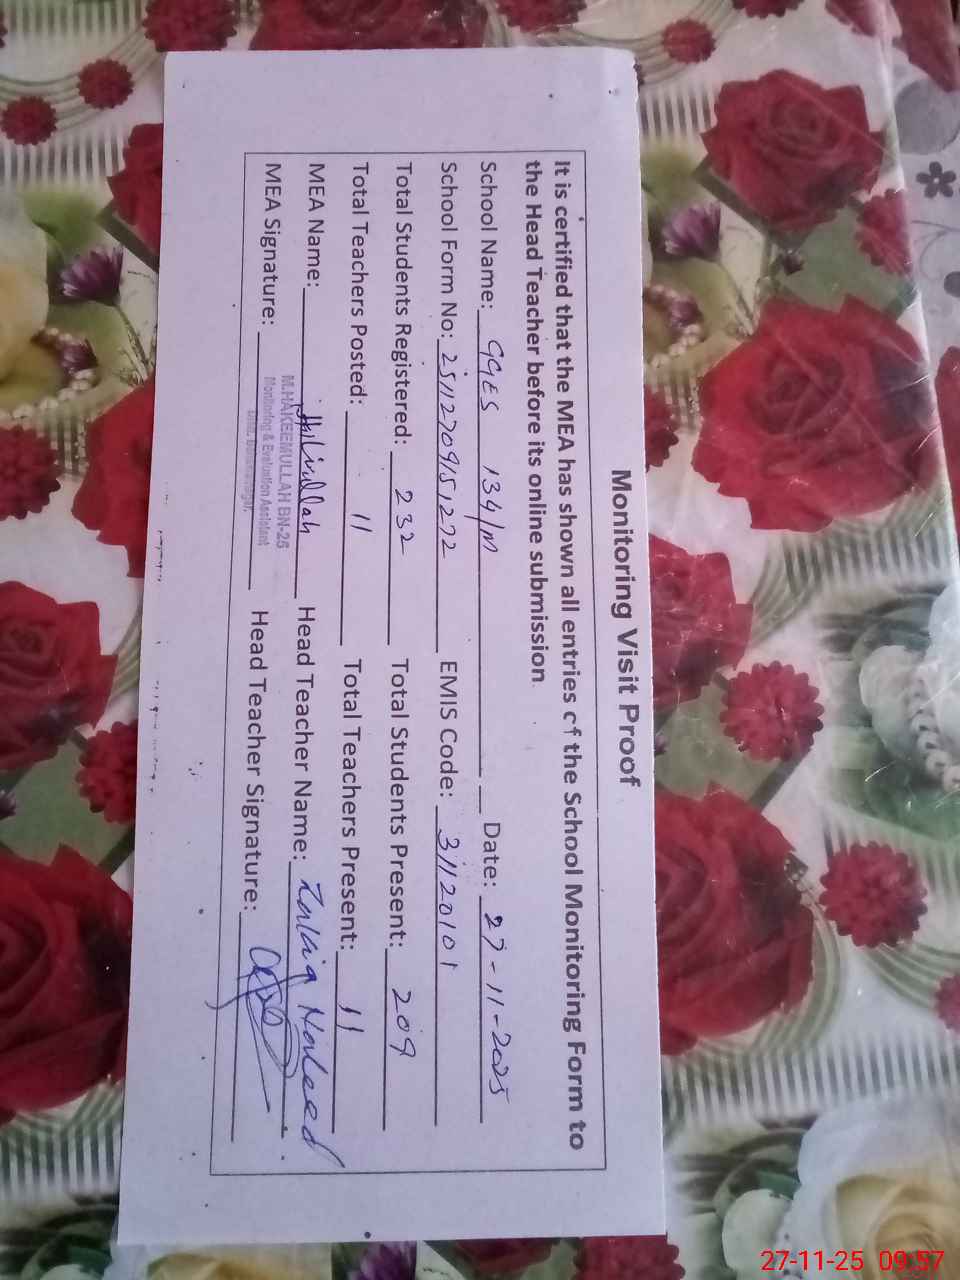 Monitoring Visit Proof
It is certified that the MEA has shown all entries of the School Monitoring Form to
the Head Teacher before its online submission
School Name: GGES 134/M Date: 27-11-2025
School Form No: EMIS Code: 31120101
Total Students Registered: 232 Total Students Present: 209
Total Teachers Posted: 11 Total Teachers Present: 11
MEA Name: Head Teacher Name: Naheed
M.HAKEEMULLAH BN-25
Monitoring & Evaluation Assistant
MEA Signature: Head Teacher Signature:
27-11-25 09:57